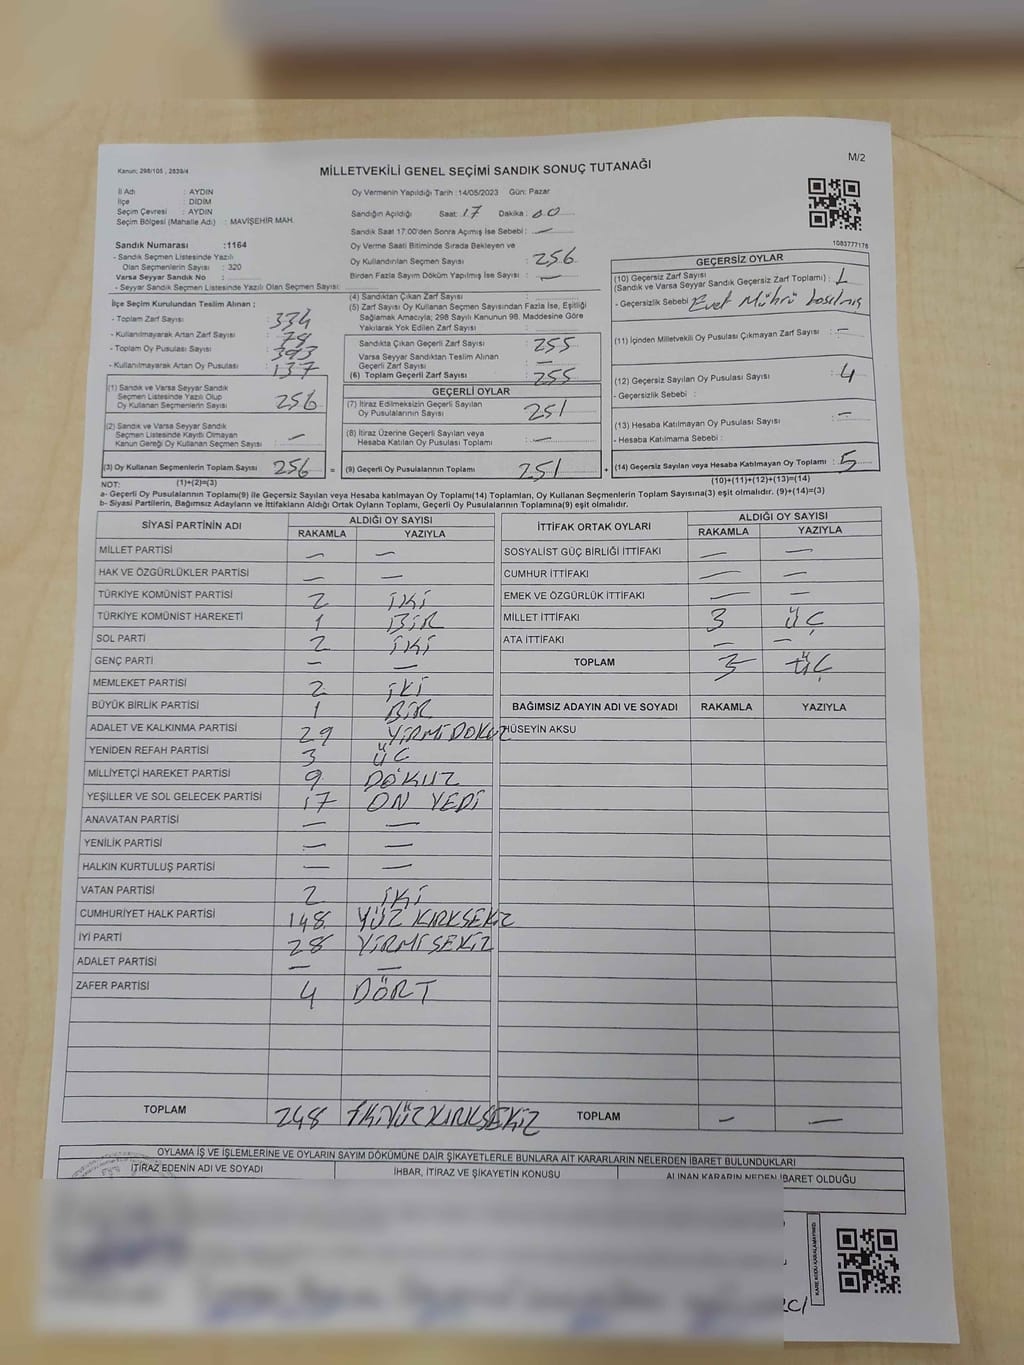 M/2
Kanun: 298/105 , 2839/4
MİLLETVEKİLİ GENEL SEÇİMİ SANDIK SONUÇ TUTANAĞI
İl Adı : AYDIN
İlçe : DİDİM
Seçim Çevresi : AYDIN
Seçim Bölgesi (Mahalle Adı) : MAVİŞEHİR MAH.
Sandık Numarası :1164
- Sandık Seçmen Listesinde Yazılı
Olan Seçmenlerin Sayısı : 320
Varsa Seyyar Sandık No :
- Seyyar Sandık Seçmen Listesinde Yazılı Olan Seçmen Sayısı:
Oy Vermenin Yapıldığı Tarih :14/05/2023 Gün: Pazar
Sandığın Açıldığı Saat: 17 Dakika : 00
Sandık Saat 17:00'den Sonra Açımış İse Sebebi : —
Oy Verme Saati Bitiminde Sırada Bekleyen ve
Oy Kullandırılan Seçmen Sayısı : 256
Birden Fazla Sayım Döküm Yapılmış İse Sayısı : —
1083777178
İlçe Seçim Kurulundan Teslim Alınan ;
- Toplam Zarf Sayısı : 334
- Kullanılmayarak Artan Zarf Sayısı : 78
- Toplam Oy Pusulası Sayısı : 393
- Kullanılmayarak Artan Oy Pusulası : 137
(1) Sandık ve Varsa Seyyar Sandık
Seçmen Listesinde Yazılı Olup
Oy Kullanan Seçmenlerin Sayısı : 256
(2) Sandık ve Varsa Seyyar Sandık
Seçmen Listesinde Kayıtlı Olmayan
Kanun Gereği Oy Kullanan Seçmen Sayısı : —
(3) Oy Kullanan Seçmenlerin Toplam Sayısı : 256 =
(1)+(2)=(3)
(4) Sandıktan Çıkan Zarf Sayısı :
(5) Zarf Sayısı Oy Kullanan Seçmen Sayısından Fazla İse, Eşitliği
Sağlamak Amacıyla; 298 Sayılı Kanunun 98. Maddesine Göre
Yakılarak Yok Edilen Zarf Sayısı :
Sandıkta Çıkan Geçerli Zarf Sayısı : 255
Varsa Seyyar Sandıktan Teslim Alınan
Geçerli Zarf Sayısı : —
(6) Toplam Geçerli Zarf Sayısı : 255
GEÇERLİ OYLAR
(7) İtiraz Edilmeksizin Geçerli Sayılan
Oy Pusulalarının Sayısı : 251
(8) İtiraz Üzerine Geçerli Sayılan veya
Hesaba Katılan Oy Pusulası Toplamı : —
(9) Geçerli Oy Pusulalarının Toplamı : 251 +
GEÇERSİZ OYLAR
(10) Geçersiz Zarf Sayısı
(Sandık ve Varsa Seyyar Sandık Geçersiz Zarf Toplamı) : 1
- Geçersizlik Sebebi : Evet Mührü basılmış
(11) İçinden Milletvekili Oy Pusulası Çıkmayan Zarf Sayısı : —
(12) Geçersiz Sayılan Oy Pusulası Sayısı : 4
- Geçersizlik Sebebi :
(13) Hesaba Katılmayan Oy Pusulası Sayısı : —
- Hesaba Katılmama Sebebi :
(14) Geçersiz Sayılan veya Hesaba Katılmayan Oy Toplamı : 5
(10)+(11)+(12)+(13)=(14)
NOT:
a- Geçerli Oy Pusulalarının Toplamı(9) ile Geçersiz Sayılan veya Hesaba katılmayan Oy Toplamı(14) Toplamları, Oy Kullanan Seçmenlerin Toplam Sayısına(3) eşit olmalıdır. (9)+(14)=(3)
b- Siyasi Partilerin, Bağımsız Adayların ve İttifakların Aldığı Ortak Oyların Toplamı, Geçerli Oy Pusulalarının Toplamına(9) eşit olmalıdır.
SİYASİ PARTİNİN ADI ALDIĞI OY SAYISI
RAKAMLA YAZIYLA
MİLLET PARTİSİ — —
HAK VE ÖZGÜRLÜKLER PARTİSİ — —
TÜRKİYE KOMÜNİST PARTİSİ 2 İKİ
TÜRKİYE KOMÜNİST HAREKETİ 1 BİR
SOL PARTİ 2 İKİ
GENÇ PARTİ — —
MEMLEKET PARTİSİ 2 İKİ
BÜYÜK BİRLİK PARTİSİ 1 BİR
ADALET VE KALKINMA PARTİSİ 29 YİRMİ DOKUZ
YENİDEN REFAH PARTİSİ 3 ÜÇ
MİLLİYETÇİ HAREKET PARTİSİ 9 DOKUZ
YEŞİLLER VE SOL GELECEK PARTİSİ 17 ON YEDİ
ANAVATAN PARTİSİ — —
YENİLİK PARTİSİ — —
HALKIN KURTULUŞ PARTİSİ — —
VATAN PARTİSİ 2 İKİ
CUMHURİYET HALK PARTİSİ 148 YÜZ KIRKSEKİZ
İYİ PARTİ 28 YİRMİ SEKİZ
ADALET PARTİSİ — —
ZAFER PARTİSİ 4 DÖRT
TOPLAM 248 İKİYÜZKIRKSEKİZ
İTTİFAK ORTAK OYLARI ALDIĞI OY SAYISI
RAKAMLA YAZIYLA
SOSYALİST GÜÇ BİRLİĞİ İTTİFAKI — —
CUMHUR İTTİFAKI — —
EMEK VE ÖZGÜRLÜK İTTİFAKI — —
MİLLET İTTİFAKI 3 ÜÇ
ATA İTTİFAKI — —
TOPLAM 3 ÜÇ
BAĞIMSIZ ADAYIN ADI VE SOYADI RAKAMLA YAZIYLA
HÜSEYİN AKSU
TOPLAM — —
OYLAMA İŞ VE İŞLEMLERİNE VE OYLARIN SAYIM DÖKÜMÜNE DAİR ŞİKAYETLERLE BUNLARA AİT KARARLARIN NELERDEN İBARET BULUNDUKLARI
İTİRAZ EDENİN ADI VE SOYADI İHBAR, İTİRAZ VE ŞİKAYETİN KONUSU ALINAN KARARIN NEDEN İBARET OLDUĞU
KARE KODU KARALAMAYINIZ!